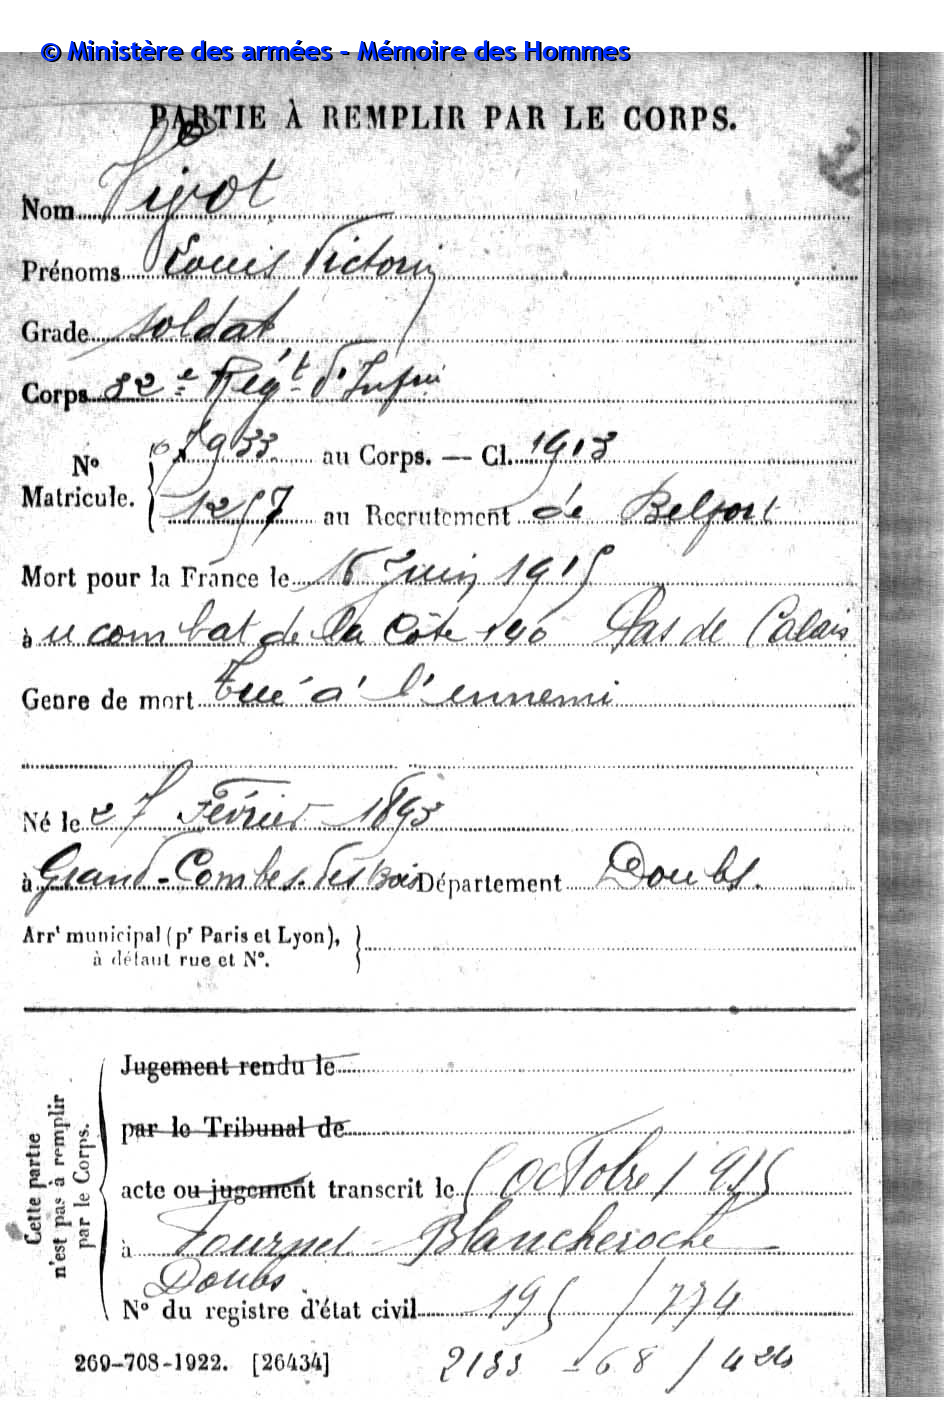 © Ministère des armées - Mémoire des Hommes
PARTIE À REMPLIR PAR LE CORPS.
Nom Vijot
Prénoms Louis Victorin
Grade soldat
Corps 82e Régt d'Infrie
No Matricule. 7933 au Corps. — Cl. 1913
1257 au Recrutement de Belfort
Mort pour la France le 16 Juin 1915
à u combat de la Côte 140 Pas de Calais
Genre de mort Tué à l'ennemi
Né le 27 Février 1893
à Grand-Combes-des bois Département Doubs.
Arrt municipal (pr Paris et Lyon),
à défaut rue et No.
Cette partie
n'est pas à remplir
par le Corps.
Jugement rendu le
par le Tribunal de
acte ou jugement transcrit le 5 octobre 1915
à Fournet Blancheroche
Doubs
No du registre d'état civil 195 / 774
269-708-1922. [26434]
2133 - 68 / 424